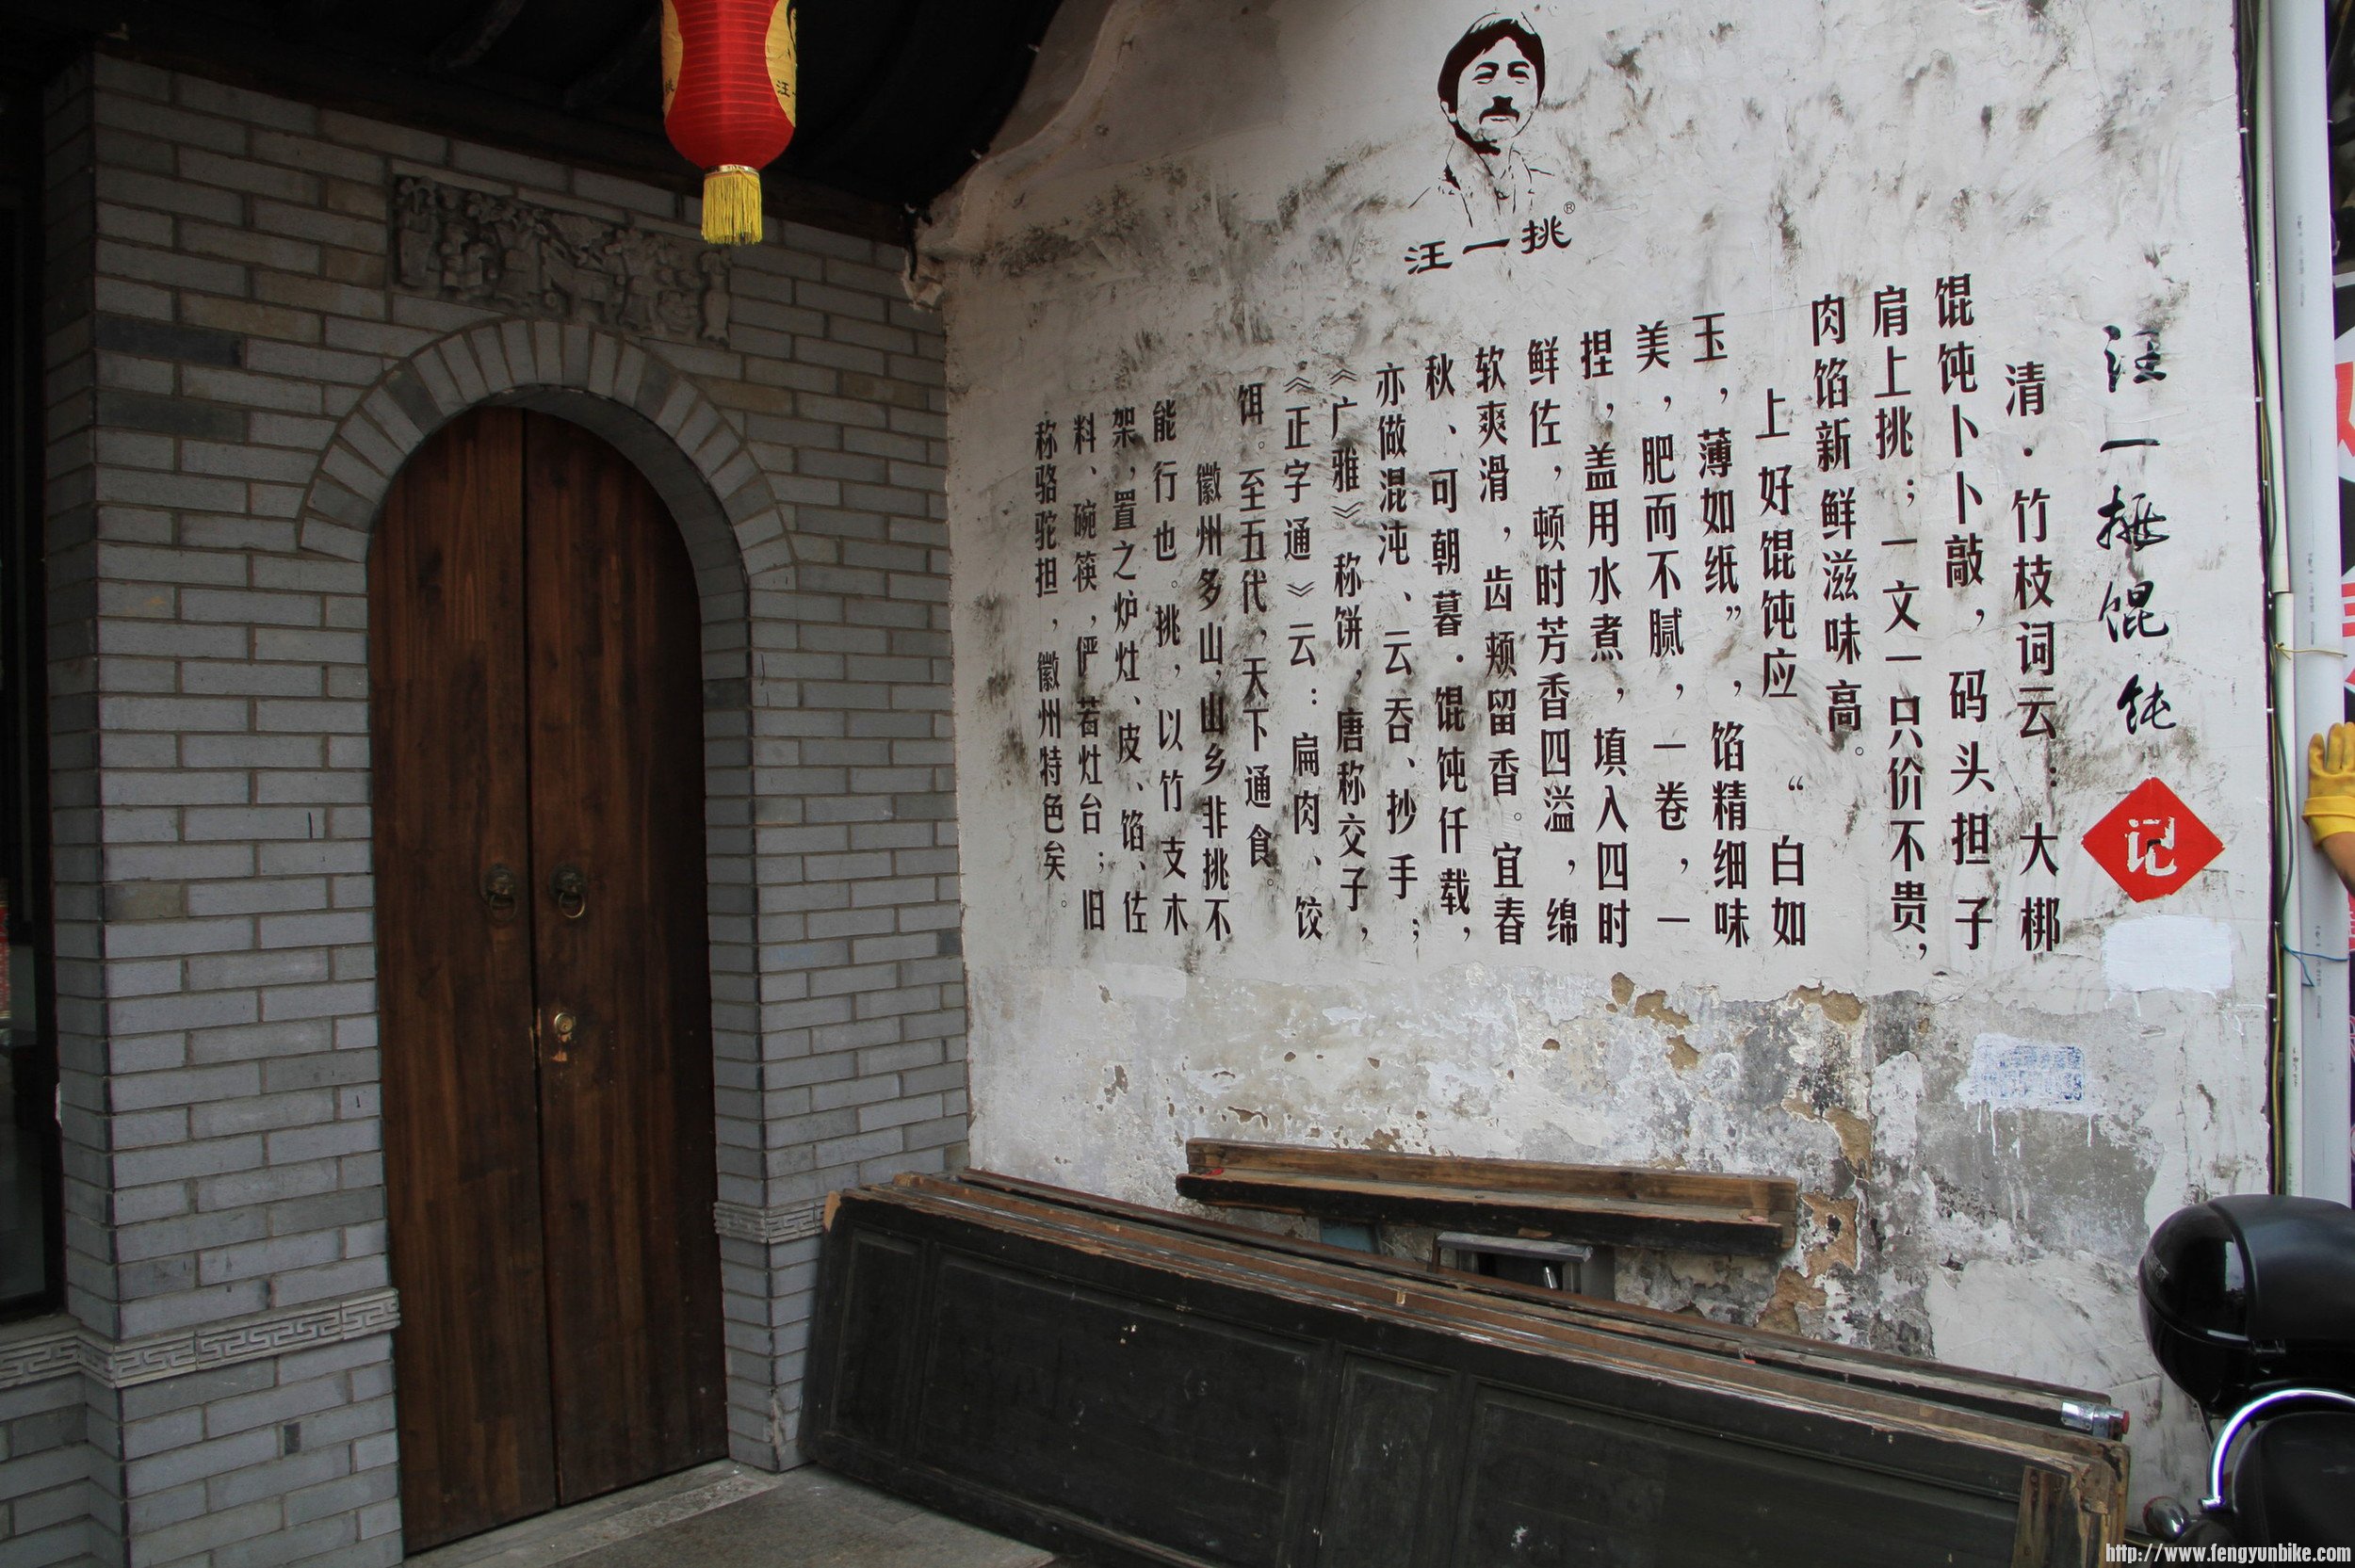 汪一挑®
汪一挑馄饨
记
清·竹枝词云：大梆
馄饨卜卜敲，码头担子
肩上挑；一文一只价不贵，
肉馅新鲜滋味高。
上好馄饨应“白如
玉，薄如纸”，馅精细味
美，肥而不腻，一卷，一
捏，盖用水煮，填入四时
鲜佐，顿时芳香四溢，绵
软爽滑，齿颊留香。宜春
秋、可朝暮·馄饨仟载，
亦做混沌、云吞、抄手；
《广雅》称饼，唐称交子，
《正字通》云：扁肉、饺
饵。至五代，天下通食。
徽州多山，山乡非挑不
能行也。挑，以竹支木
架，置之炉灶、皮、馅、佐
料、碗筷，俨若灶台；旧
称骆驼担，徽州特色矣。
汪一
http://www.fengyunbike.com